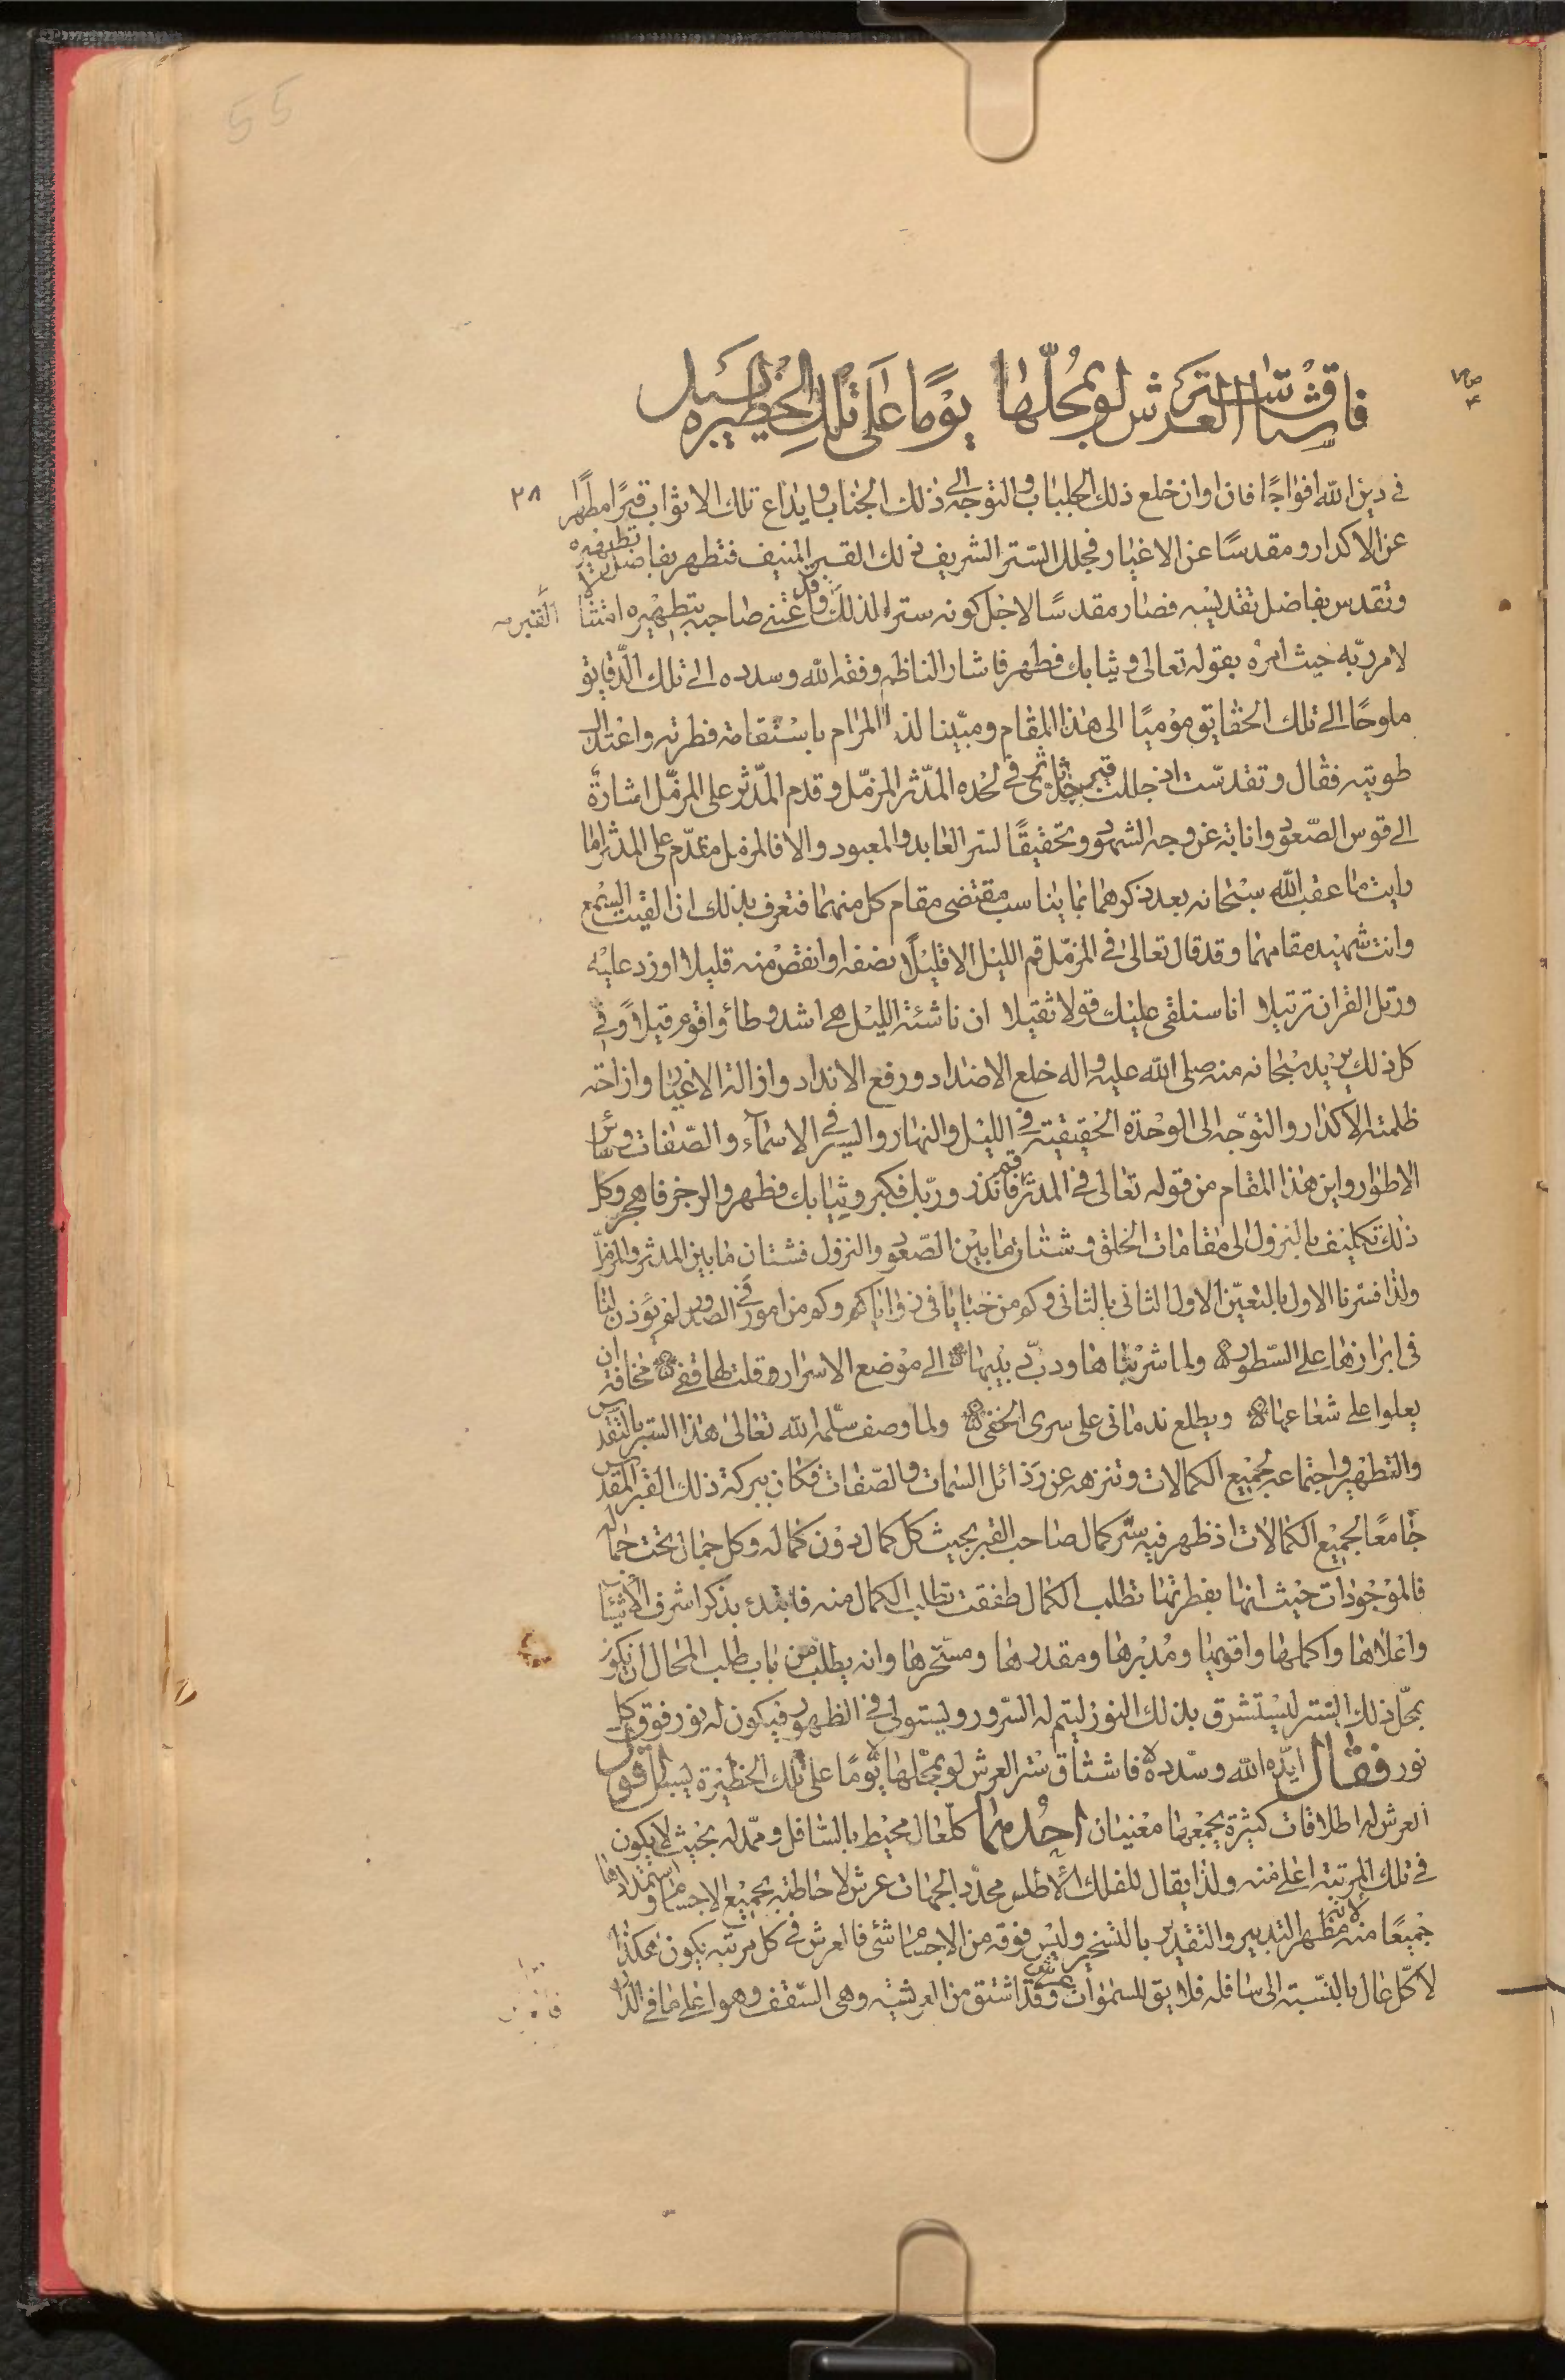 55
فاشتاق ستر العرش لو بمحلها يومًا على تلك الحظيرة يسبل
في دين الله افواجًا فان اوان خلع ذلك الجلباب والتوجه الى ذلك الجناب وايداع تلك الاثواب قبرًا مطهرا ٣٨
عن الاكدار ومقدسًا عن الاغيار فجلل الستر الشريف ذلك القبر المنيف فتطهر بفاضل تطهيره
وتقدس بفاضل تقديسه فصار مقدسًا لاجل كونه سترا لذلك القبر وقد اعتنى صاحبه بتطهيره امتثالا
لامر ربّه حيث امره بقوله تعالى وثيابك فطهر فاشار الناظم وفقه الله وسدده الى تلك الدقايق
ملوحًا الى تلك الحقايق مؤميًا الى هذا المقام ومبيّنا لذا المرام باستقامة فطرته واعتدال
طويته فقال وتقدّست اذ جللت قبر ثوى في لحده المدّثر المزمّل وقدم المدّثر على المزمّل اشارة
الى قوس الصّعود وانابة عن وجه الشهود وتحقيقًا لسر العابد والمعبود والا فالمزمل متقدّم على المدثر اما
رايت ما عقب الله سبحانه بعد ذكرهما بما يناسب مقتضى مقام كل منهما فتعرف بذلك اذا القيت السمع
وانت شهيد مقامهما وقد قال تعالى في المزمّل قم الليل الا قليلًا نصفه او انقص منه قليلا او زد عليه
ورتل القران ترتيلا انا سنلقي عليك قولا ثقيلا ان ناشئة الليل هي اشد وطأ واقوم قيلًا وفي
كل ذلك يريد سبحانه منه صلى الله عليه واله خلع الاضداد ورفع الانداد وازالة الاغيار وازاحة
ظلمة الاكدار والتوجّه الى الوحدة الحقيقية في الليل والنهار والسير في الاسماء والصّفات وسائر
الاطوار واين هذا المقام من قوله تعالى في المدثر قم فانذر وربّك فكبر وثيابك فطهر والرجز فاهجر وكل
ذلك تكليف بالنزول الى مقامات الخلق وشتان ما بين الصّعود والنزول فشتان ما بين المدثر والمزمّل
ولذا فسّرنا الاول بالتعيّن الاول الثانى بالثانى وكم من خبايا في زواياكم وكم من امور في الصدور لم يؤذن لنا
في ابرازها على السّطور ولما شربناها ودبّ دبيبها الى موضع الاسرار وقلت لها قفى مخافة ان
يعلوا على شعاعها ويطلع ندمانى على سرى الخفى ولما وصف سلّمه الله تعالى هذا الستر بالتقديس
والتطهير واجتماعه لجميع الكمالات وتنزهه عن رذائل السمات والصّفات فكان ببركة ذلك القبر المقدس
جامعًا لجميع الكمالات اذ ظهر فيه سّر كمال صاحب القبر بحيث كل كمال دون كماله وكل جمال تحت جماله
فالموجودات حيث انها بفطرتها تطلب الكمال طفقت تطلب الكمال منه فابتدء بذكر اشرف الاشياء
واعلاها واكملها واقويها ومدبرها ومقدرها ومسخرها وانه يطلب من باب طلب المحال ان يكون
بمحلّ ذلك الستر ليستشرق بذلك النور ليتم له السّرور ويستولي في الظهور فيكون له نور فوق كل
نور فقال ايّده الله وسدّده فاشتاق ستر العرش لو بمحلها يومًا على تلك الحظيرة يسبل اقول
العرش له اطلاقات كثيرة يجمعها معنيان احدهما كلّ عال محيط بالسّافل وممدّ له بحيث لا يكون
في تلك المرتبة اعلى منه ولذا يقال للفلك الاطلس محدّد الجهات عرش لاحاطته بجميع الاجسام واستمدادها
جميعًا منه لانه مظهر التدبير والتقدير بالتسخير وليس فوقه من الاجسام شئ فالعرش في كل مرتبة يكون هكذا
لا كلّ عال بالنّسبة الى سافله فلا يق للسموات عرش وقد اشتق من العرشية وهى السّقف وهو اعلى ما في الدّار